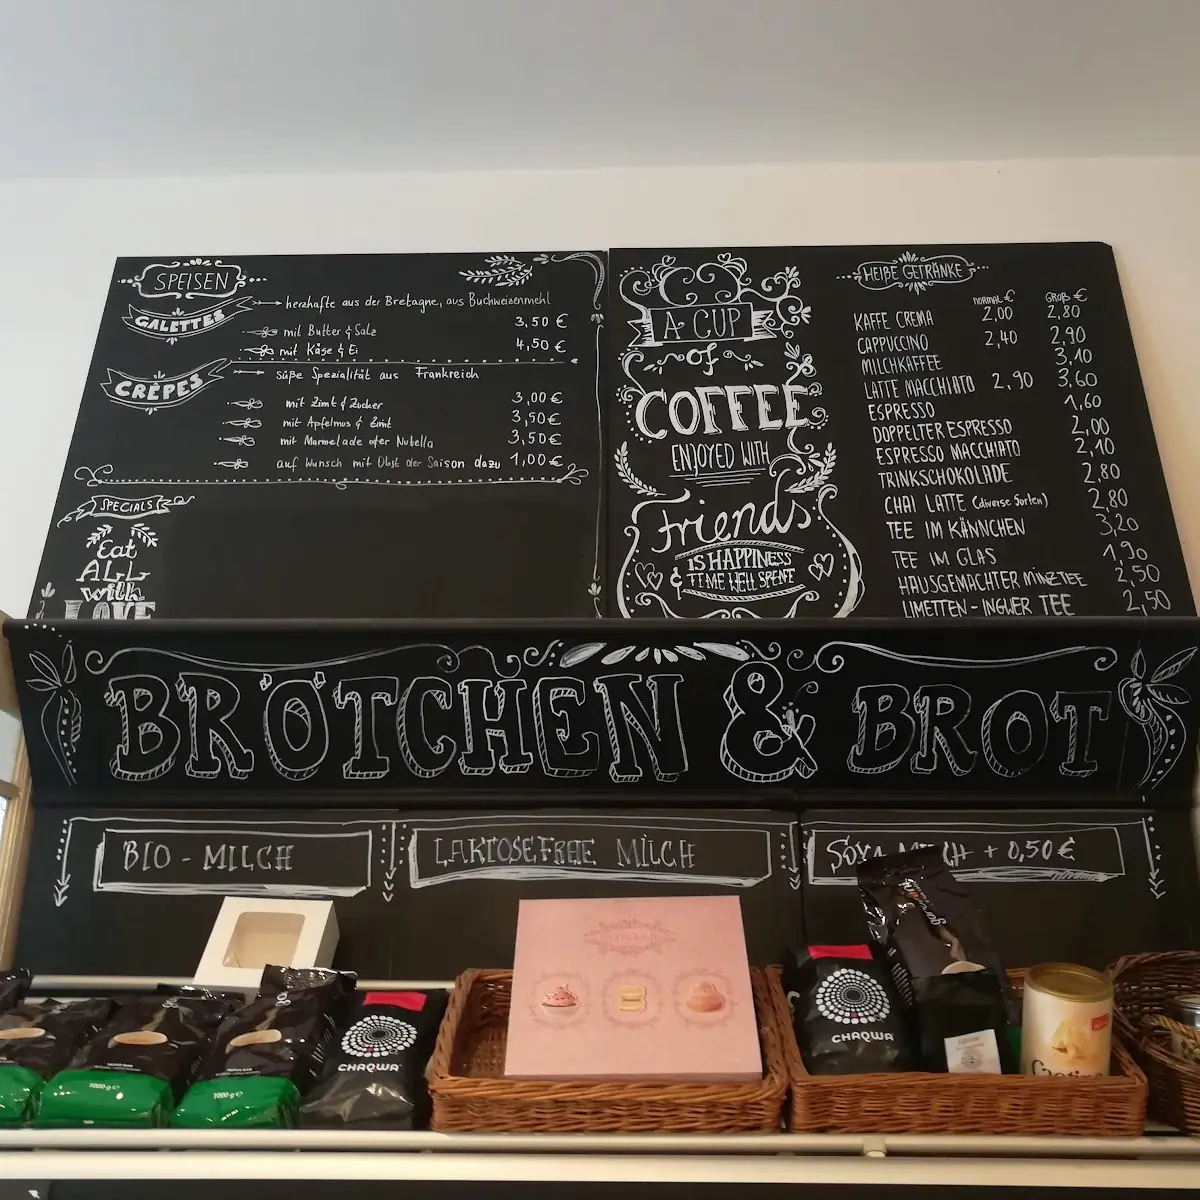 SPEISEN
GALETTES herzhafte aus der Bretagne, aus Buchweizenmehl
mit Butter & Salz 3,50 €
mit Käse & Ei 4,50 €
CRÊPES süße Spezialität aus Frankreich
mit Zimt & Zucker 3,00 €
mit Apfelmus & Zimt 3,50€
mit Marmelade oder Nutella 3,50€
auf Wunsch mit Obst der Saison dazu 1,00€
SPECIALS
Eat
ALL
with
LOVE
A CUP
of
COFFEE
ENJOYED WITH
Friends
IS HAPPINESS
& TIME WELL SPENT
HEIßE GETRÄNKE
NORMAL € GROß €
KAFFE CREMA 2,00 2,80
CAPPUCCINO 2,40 2,90
MILCHKAFFEE 3,10
LATTE MACCHIATO 2,90 3,60
ESPRESSO 1,60
DOPPELTER ESPRESSO 2,00
ESPRESSO MACCHIATO 2,10
TRINKSCHOKOLADE 2,80
CHAI LATTE (diverse Sorten) 2,80
TEE IM KÄNNCHEN 3,20
TEE IM GLAS 1,90
HAUSGEMACHTER MINZTEE 2,50
LIMETTEN-INGWER TEE 2,50
BRÖTCHEN & BROT
BIO - MILCH
LAKTOSEFREIE MILCH
SOYA MILCH + 0,50€
1000 g e
1000 g e
CHAQWA
CHAQWA